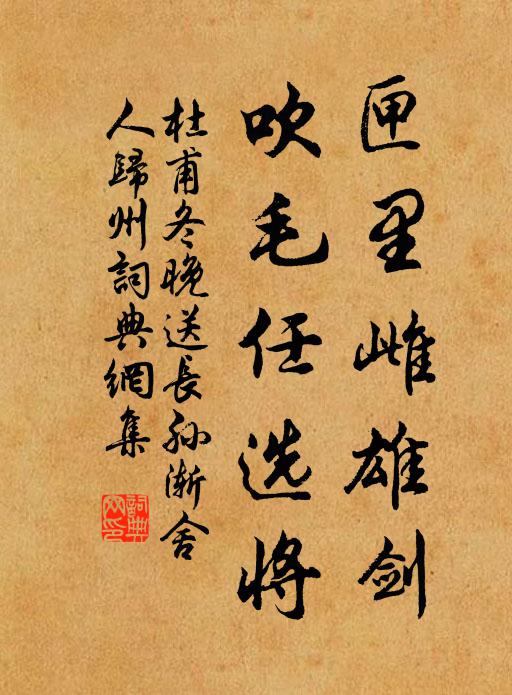 匣里雌雄剑
吹毛任选将
杜甫冬晚送長孙渐舍
人歸州詞典網集
詞典
网印